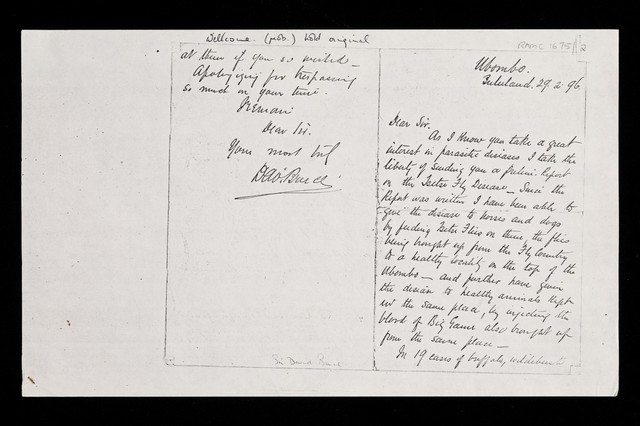 Wellcome (prob.) hold original
RAMC 1675/
at them if you so wished_
Apologizing for trespassing
so much on your time.
I remain
Dear Sir.
Yours most truly
David Bruce
Sir David Bruce
Ubombo.
Zululand. 29. 2. 96
Dear Sir.
As I know you take a great
interest in parasitic diseases I take the
liberty of sending you a prelim. Report
on the Tsetse Fly Disease_ Since the
Report was written I have been able to
give the disease to horses and dogs
by feeding Tsetse Flies on them, the flies
being brought up from the Fly Country
to a healthy locality on the top of the
Ubombo_ and further have given
the disease to healthy animals kept
in the same place, by injecting the
blood of Big Game also brought up
from the same place_
In 19 cases of buffalo, wildebeeste